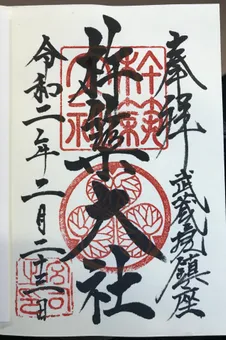 奉拝
武蔵境鎮座
杵築大社
杵築大社
令和二年二月二十三日